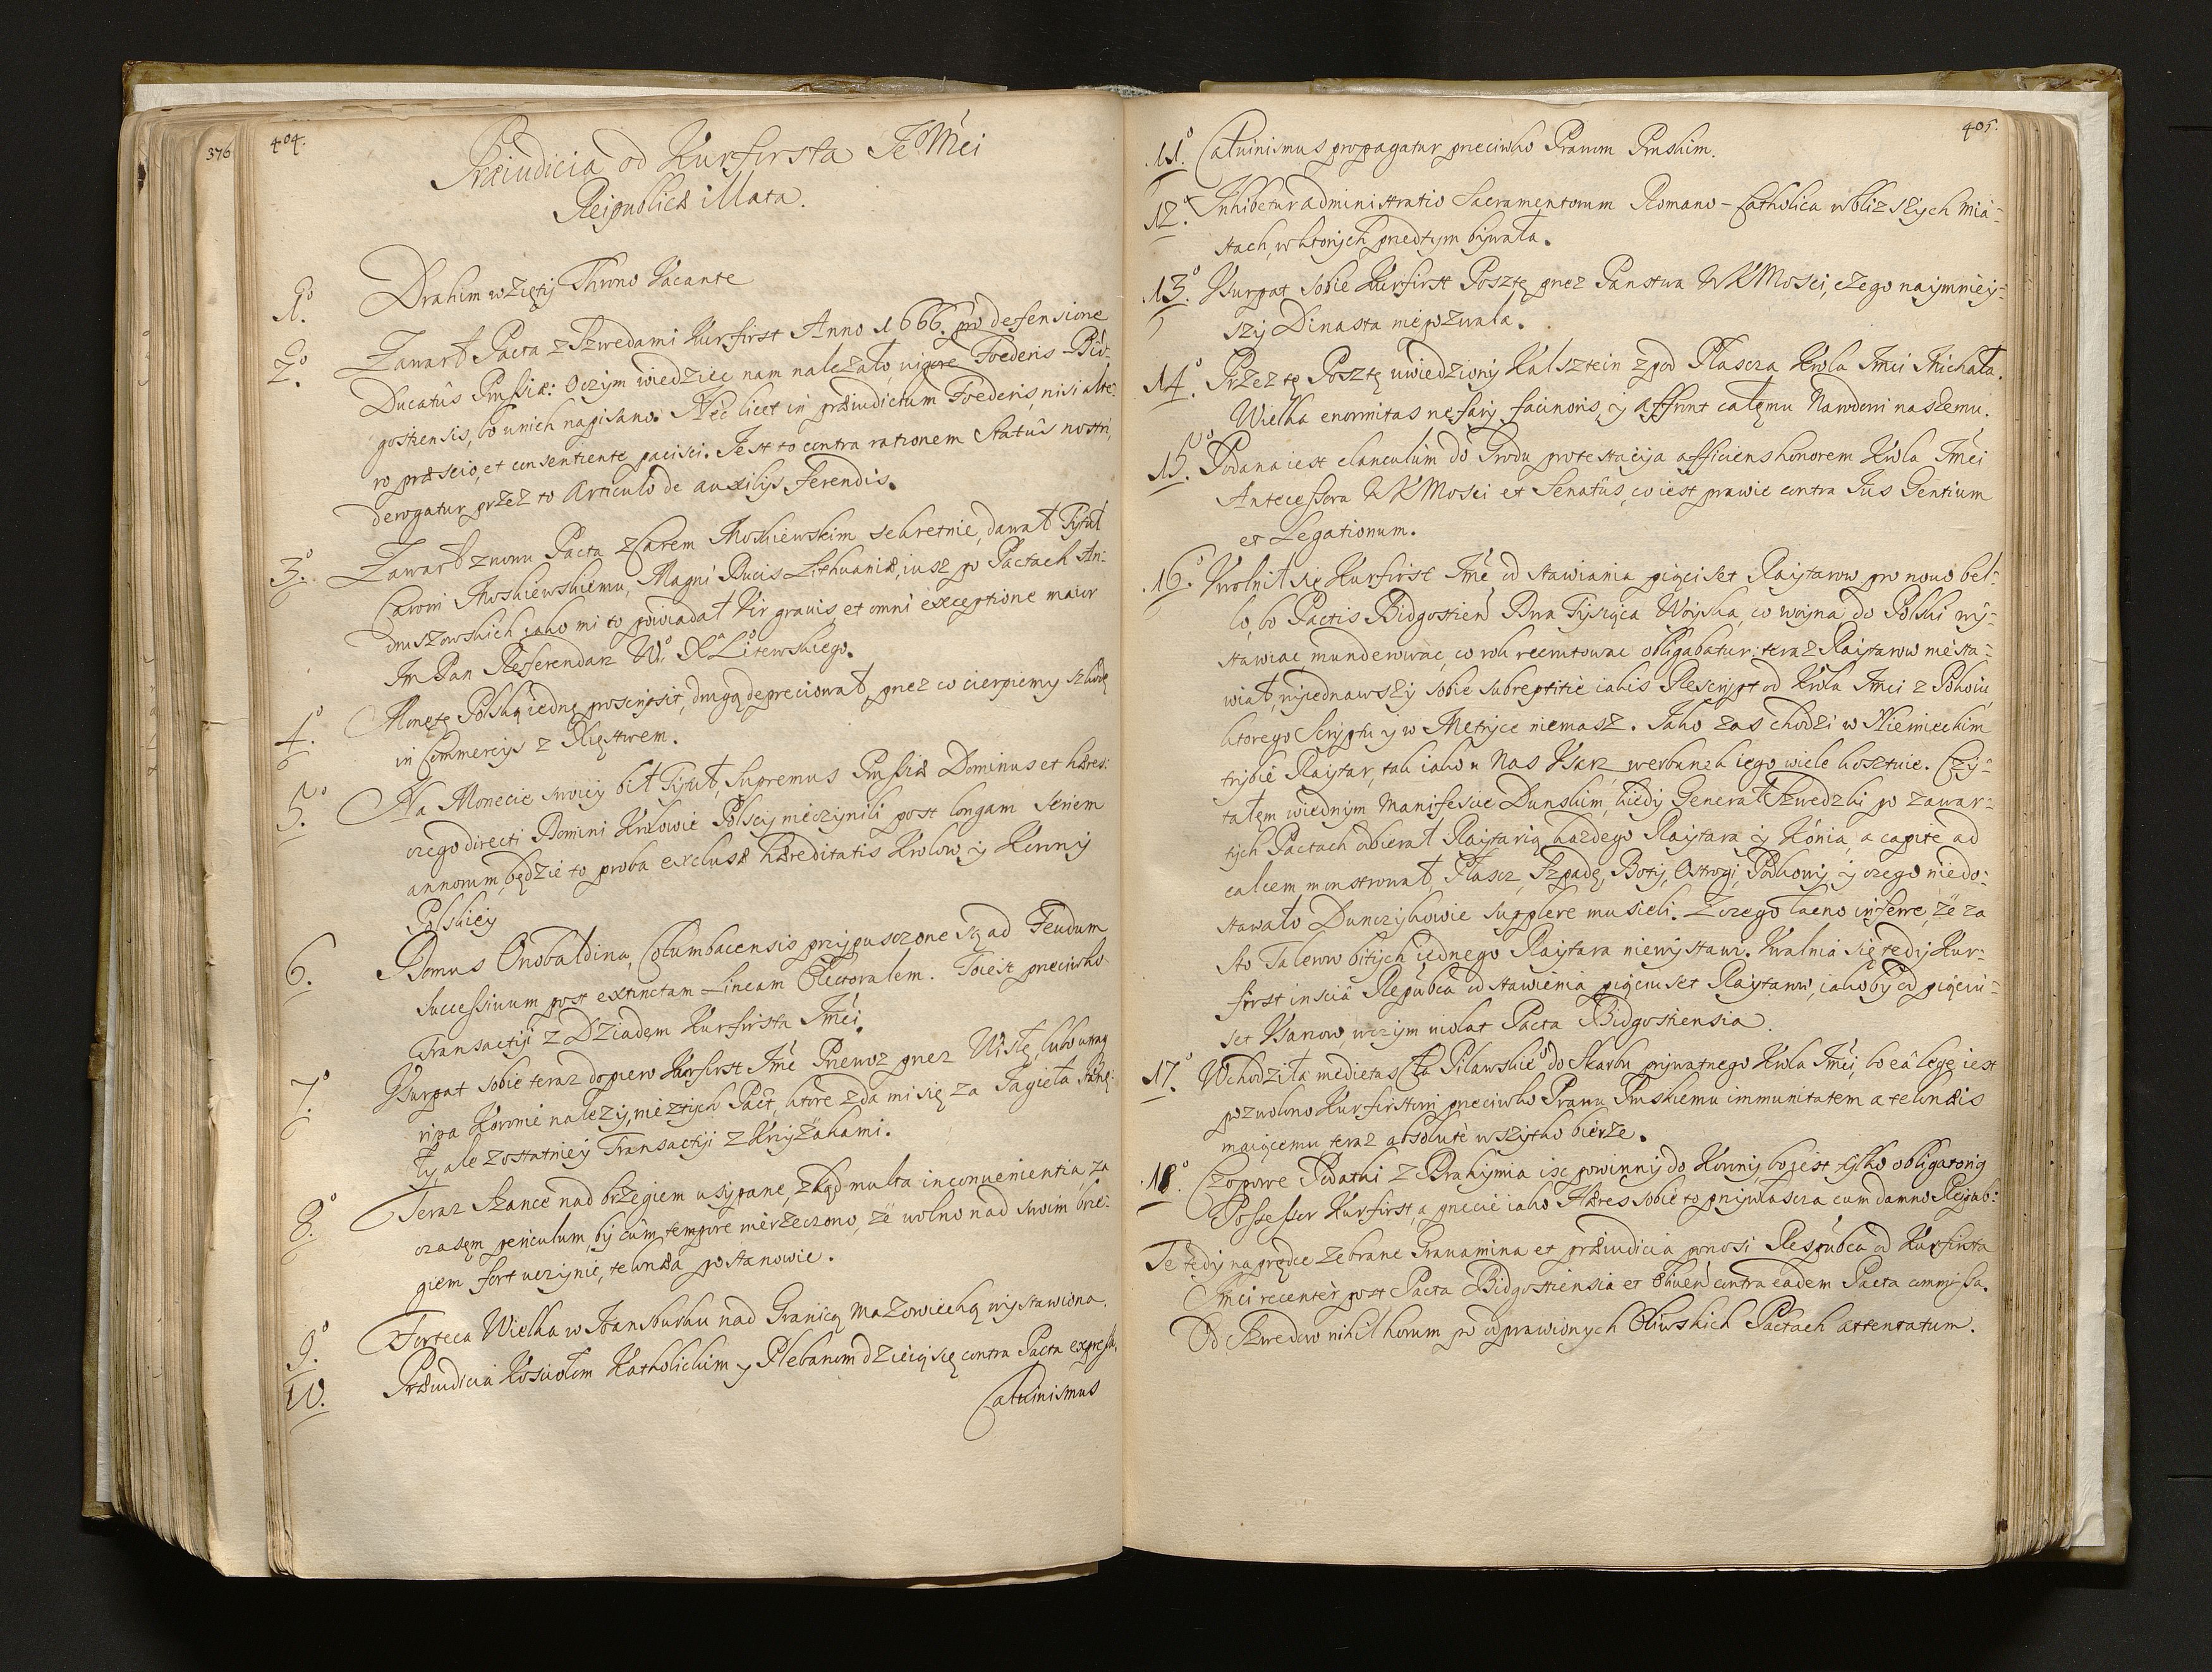 376
404.
Præiudicia od Kurfirsta Je Mci
Reipublicæ illata.
1º. Drahim wzięty Throno Vacante
2º. Zawarł Pacta z Szwedami Kurfirst Anno 1666. pro defensione
Ducatûs Prussiæ: Oczym wiedziec nam należało, vigore Foederis Bid-
gostiensis, bo w nich napisano. Nec licet in præiudicium Foederis, nisi alte-
ro præscio, et consentiente pacisci. Jest to contra rationem Statûs nostri,
derogatur przez to Articulo de auxilijs ferendis.
3º. Zawarł znowu Pacta z Carem Moskiewskim sekretnie, dawał Tytuł
Carowi Moskiewskiemu, Magni Ducis Lithuaniæ, iusz po Pactach An-
druszowskich, iako mi to powiadał Vir gravis, et omni exceptione maior
Jm Pan Referendarz Wº. Xª Litewskiego.
4º. Monetę Polską iednę proscripsit, drugą depreciował, przez co cierpiemy szkodę
in Commercijs z Xięstwem.
5º. Na Monecie swoiey bił Tytuł, Supremus Prussiæ Dominus et hæres:
czego directi Domini Krolowie Polscy nieczynili post longam seriem
annorum, będzie to proba exclusæ hæreditatis Krolow, y Korony
Polskiey
6. Domus Onobaldina, Columbacensis przypuszczone są ad Feudum
successivum post extinctam Lineam Electoralem. Toiest przeciwko
Transactiji z Dziadem Kurfirsta Jmci.
7º. Vsurpat sobie teraz dopiero Kurfirst Jmc Przewoz przez Wisłę, lubo utraq
ripa Koronie należy, nie z tych Pact, ktore zda mi się za Jagieła
ty, ale z ostatniey Transactiji z Krzyżakami.
8º. Teraz Szance nad brzegiem usypane, zkąd multa inconvenientia, za
czasem periculum, by cum tempore nierzeczono, że wolno nad swoim brze-
giem fort uczynic, telonia postanowic.
9º. Forteca Wielka w Joansburku nad Granicą Mazowiecką wystawiona.
10. Præiudicia Kościołom Katholickim y Plebanom dzieią się contra Pacta expressa.
Caluinismus
405.
11º. Caluinismus propagatur przeciwko Prawom Pruskim.
12º. Inhibetur administratio Sacramentorum Romano-Catholica w bliższych mia-
stach, w ktorych przedtym bywała.
13º. Vsurpat sobie Kurfirst Posztę przez Panstwa WKMosci, czego naymniey-
szy Dinasta niepozwala.
14º. Przez tę Posztę uwiedziony Kalsztein z pod Płascza Krola Jmci Michała.
Wielka enormitas nefarij facinoris, y affront całemu Narodowi naszemu.
15º. Podana iest clanculum do Grodu protestacija afficiens honorem Krola Jmci
Antecessora WKMosci et Senatûs, co iest prawie contra Jus Gentium
et Legationum.
16º. Vwolnił się Kurfirst Jmc od stawiania pięciset Raytarow pro nouo bel-
lo, bo Pactis Bidgostien Dwa Tysiąca Woyska, co woyna do Polski wy-
stawiac, munderowac, co rok recrutowac obligabatur: teraz Raytarow niesta-
wiał, wyiednawszy sobie subreptitiè iakis Rescript od Krola Jmci z Pokoiu,
ktorego Scriptu y w Metryce niemasz. Jako zas chodzi w Niemieckim
trybie Raytar, tak iako u Nas Vsarz, werbunek iego wiele kosztuie. Czy-
tałem w iednym Manifescie Dunskim, kiedy Generał Szwedzki po zawar-
tych Pactach odbierał Raytarią każdego Raytara y Konia, a capite ad
calcem monstrował, Płascz, Szpadę, Boty, Ostrogi, Podkowy, y czego niedo-
stawało Dunczykowie supplere musieli. Z czego łacno inferre, że za
sto Talerow bitych iednego Raytara niewystawi. Vwalnia się tedy Kur-
first insciâ Repubca od stawienia pięciuset Raytarow, iakoby od pięciu-
set Vsarzow, w czym violat Pacta Bidgostiensia.
17º. Wchodziła medietas Cła Pilawskieº do Skarbu prywatnego Krola Jmci, bo eâ lege iest
pozwolono Kurfirstowi przeciwko Prawu Pruskiemu immunitatem a teloneis
maiącemu teraz absolutè wszytko bierze.
18º. Czopowe Podatki z Drahymia isc powinny do Korony, bo iest tylko obligatoriq
Possessor Kurfirst, a przecie iako Hæres sobie to przywłascza cum damno Reipub:
Te tedy naprędce zebrane Gravamina et præiudicia ponosi Respubca od Kurfirsta
Jmci recentèr post Pacta Bidgostiensia et Oliuen contra eadem Pacta commissa.
Od Szwedow nihil horum po odprawionych Oliwskich Pactach attentatum.